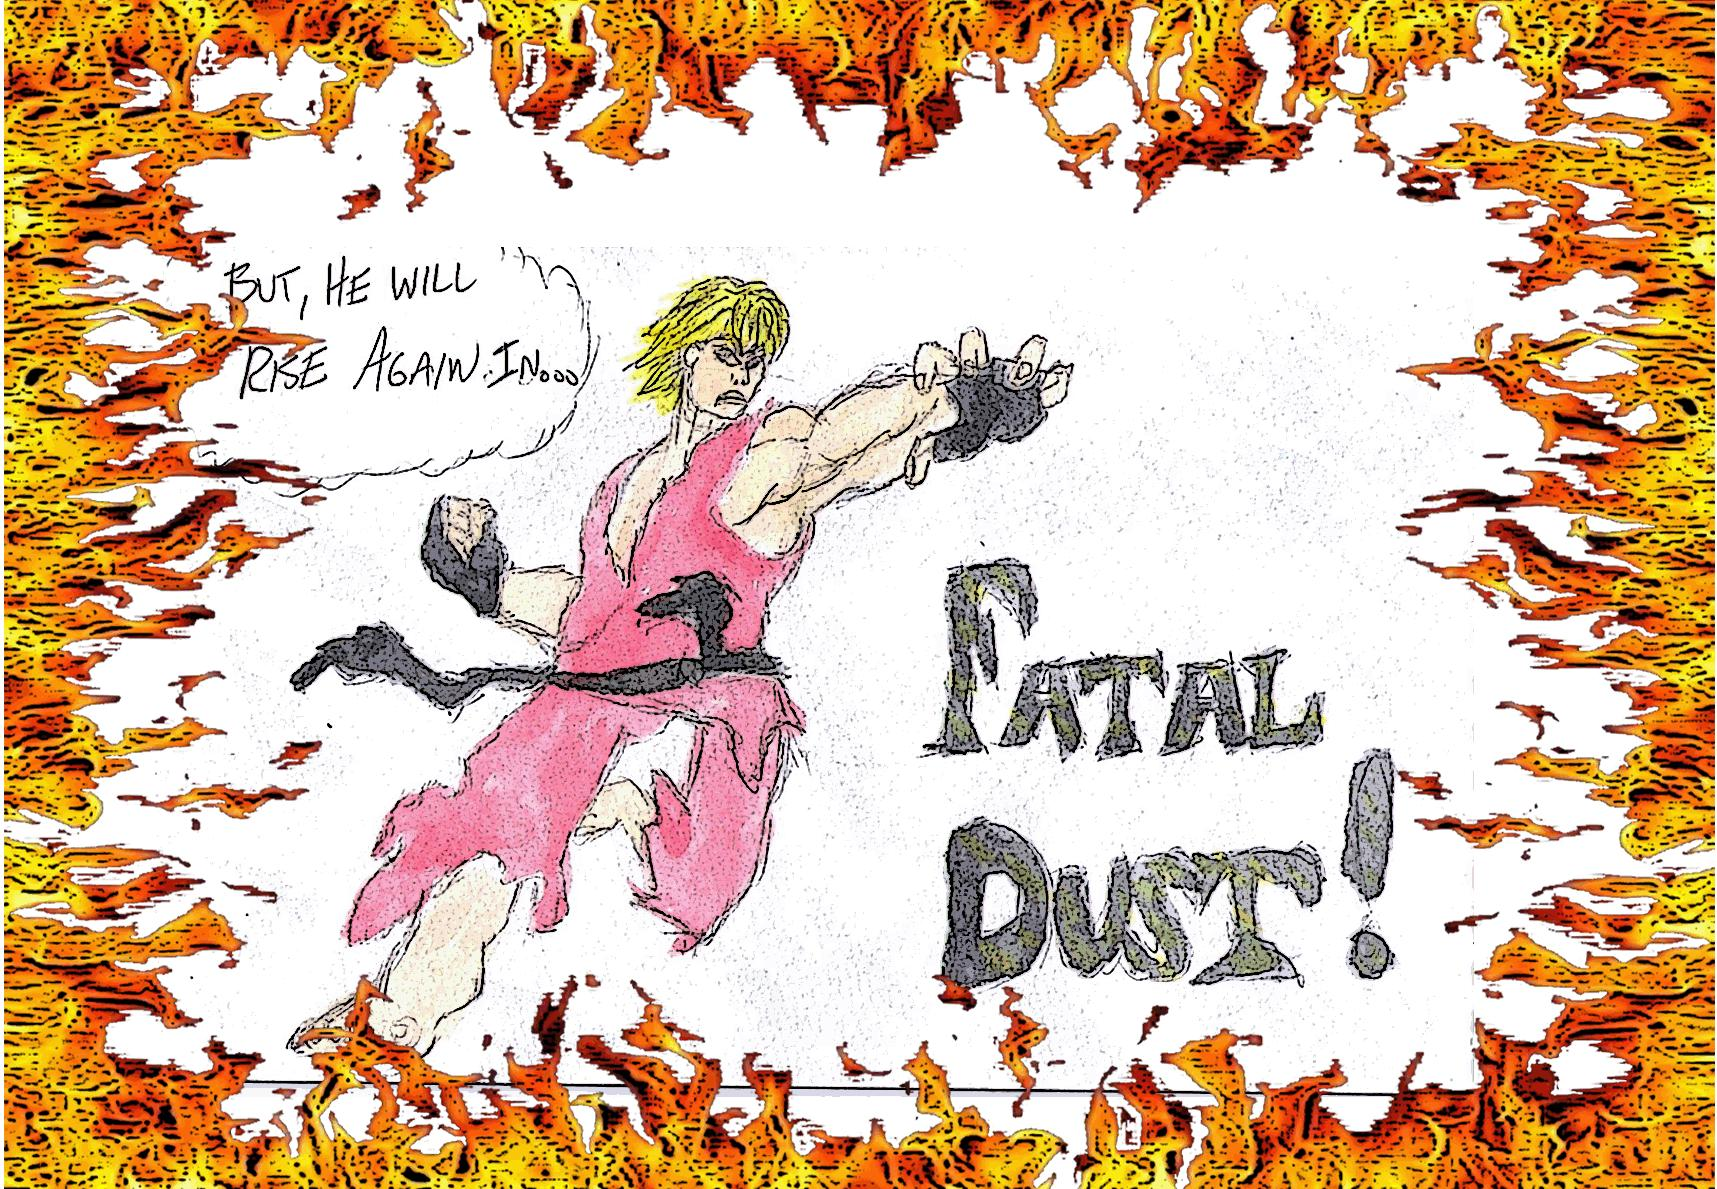 BUT, HE WILL
RISE AGAIN. IN...
FATAL
DUST!